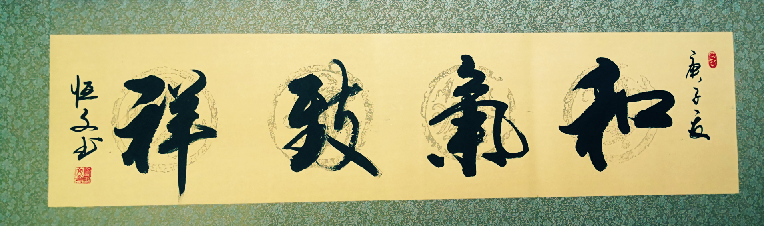 庚子夏
和氣致祥
恒文书